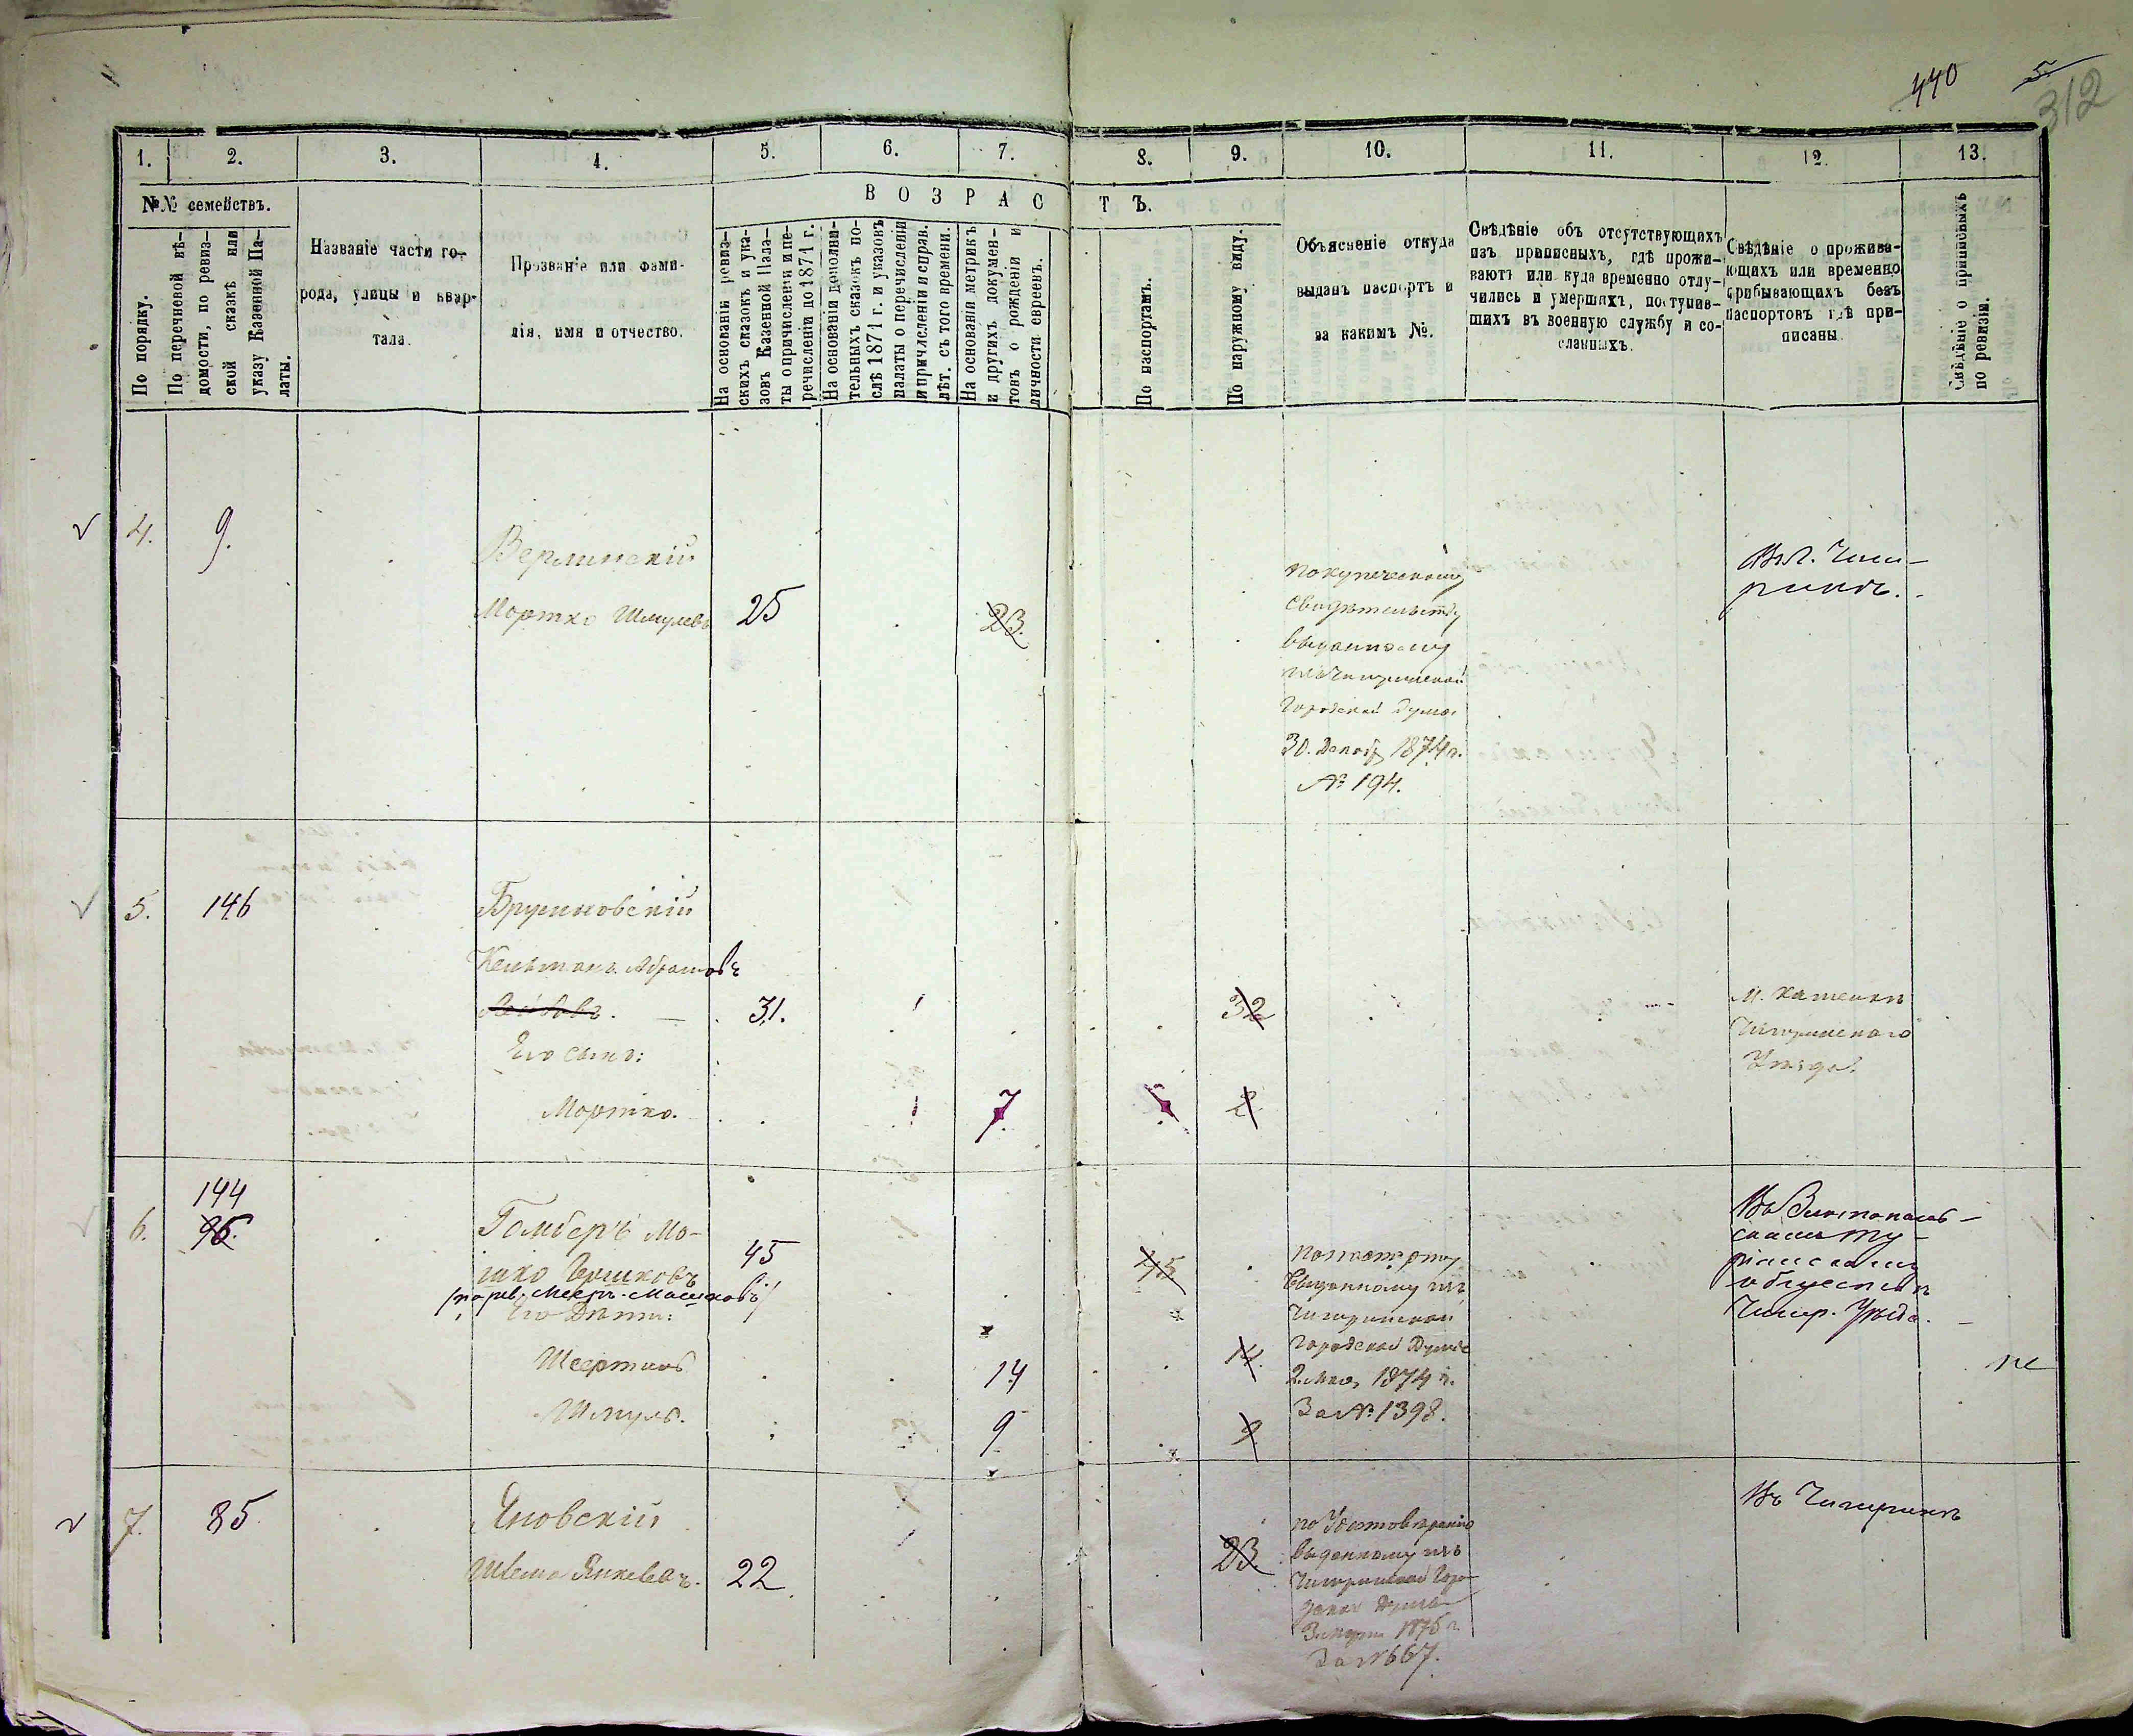 440
5.
312
1.
2.
3.
4.
5.
6.
7.
8.
9.
10.
11.
12.
13.
№№ семействъ.
По порядку.
По перечневой вѣ-
домости, по ревиз-
ской сказкѣ или
указу Казенной Па-
латы.
Названіе части го-
рода, улицы и квар-
тала.
Прозваніе или фами-
лія, имя и отчество.
ВОЗРАСТЪ.
На основаніи ревиз-
скихъ сказокъ и ука-
зовъ Казенной Пала-
ты о причисленіи и пе-
речисленіи до 1871 г.
На основаніи дополни-
тельныхъ сказокъ по-
слѣ 1871 г. и указовъ
палаты о перечисленіи
и причисленіи и справ.
лѣт. съ того времени.
На основаніи метрикъ
и другихъ докумен-
товъ о рожденіи и
личности евреевъ.
По паспортамъ.
По наружному виду.
Объясненіе откуда
выданъ паспортъ и
за какимъ №.
Свѣдѣніе объ отсутствующихъ
изъ приписныхъ, гдѣ прожи-
ваютъ или куда временно отлу-
чились и умершихъ, поступив-
шихъ въ военную службу и со-
сланныхъ.
Свѣдѣніе о прожива-
ющихъ или временно
прибывающихъ безъ
паспортовъ гдѣ при-
писаны.
Свѣдѣніе о приписныхъ
по ревизіи.
4.
9.
Верлинскій
Мортко Шмулевъ
25
23.
по купеческому
свидѣтельству
выданному
изъ Чигиринской
Городской Думы
30. Декаб. 1874 г.
№ 194.
Въ г. Чиги-
ринѣ.
5.
146
Бружковскій
Кельманъ Абрамовъ
Лейбовъ.
31.
32
Его сынъ:
Мортко.
7
2
М. Каменки
Чигиринскаго
Уѣзда.
6.
144
96.
Гомберъ Мо-
шко Гершковъ
(по рев. Мееръ-Мошковъ)
45
45
Его Дѣти:
14
14.
Шмуль.
9
9
по паспорту
выданному изъ
Чигиринской
Городской Думы
2. Мая 1874 г.
За № 1398.
Въ Златополь-
скомъ
обществѣ
Чигир. Уѣзда.
не
7.
85
Яновскій
Шлема Янкелевъ.
22
23.
по Удостовѣренію
выданному изъ
Чигиринской Горо-
дской Думы
3. Марта 1875 г.
За № 667.
Въ Чигиринѣ